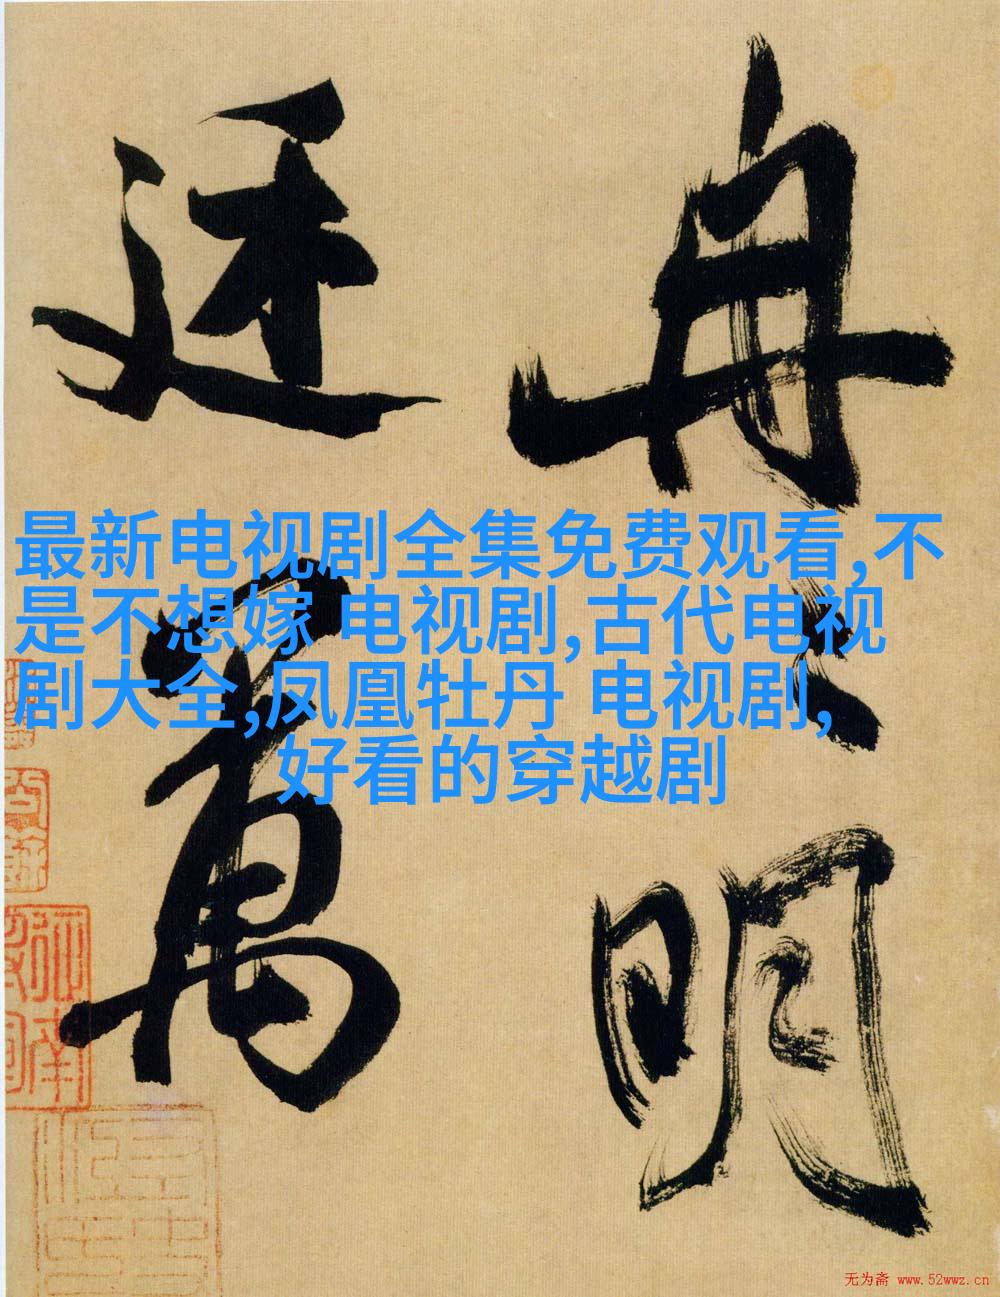 明
萬
最新电视剧全集免费观看,不
是不想嫁 电视剧,古代电视
剧大全,凤凰牡丹 电视剧,
好看的穿越剧
无为斋 www.52wwz.cn